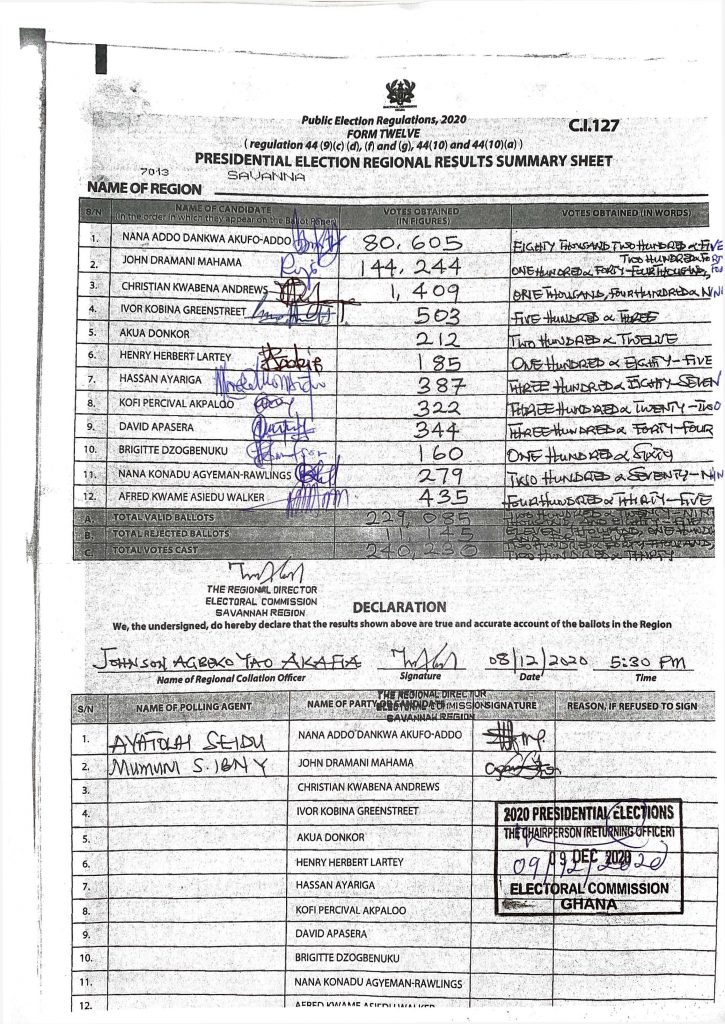 ELECTORAL COMMISSION
Public Election Regulations, 2020
C.I.127
FORM TWELVE
( regulation 44 (9)(c) (d), (f) and (g), 44(10) and 44(10)(a) )
PRESIDENTIAL ELECTION REGIONAL RESULTS SUMMARY SHEET
7013 SAVANNA
NAME OF REGION
S/N NAME OF CANDIDATE (in the order in which they appear on the Ballot Paper) VOTES OBTAINED (IN FIGURES) VOTES OBTAINED (IN WORDS)
1. NANA ADDO DANKWA AKUFO-ADDO 80,605 EIGHTY THOUSAND TWO HUNDRED & FIVE
2. JOHN DRAMANI MAHAMA 144,244 ONE HUNDRED & FORTY-FOUR THOUSAND, TWO HUNDRED & FORT
3. CHRISTIAN KWABENA ANDREWS 1,409 ONE THOUSAND, FOUR HUNDRED & NIN
4. IVOR KOBINA GREENSTREET 503 FIVE HUNDRED & THREE
5. AKUA DONKOR 212 TWO HUNDRED & TWELVE
6. HENRY HERBERT LARTEY 185 ONE HUNDRED & EIGHTY-FIVE
7. HASSAN AYARIGA 387 THREE HUNDRED & EIGHTY-SEVEN
8. KOFI PERCIVAL AKPALOO 322 THREE HUNDRED & TWENTY-TWO
9. DAVID APASERA 344 THREE HUNDRED & FORTY-FOUR
10. BRIGITTE DZOGBENUKU 160 ONE HUNDRED & SIXTY
11. NANA KONADU AGYEMAN-RAWLINGS 279 TWO HUNDRED & SEVENTY-NIN
12. AFRED KWAME ASIEDU WALKER 435 FOUR HUNDRED & THIRTY-FIVE
A. TOTAL VALID BALLOTS 229,085 THOUSAND, AND EIGHTY-FIVE
B. TOTAL REJECTED BALLOTS 11,145 ELEVEN THOUSAND, ONE HUND
C. TOTAL VOTES CAST 240,230 TWO HUNDRED & THIRTY
THE REGIONAL DIRECTOR
ELECTORAL COMMISSION
SAVANNAH REGION
DECLARATION
We, the undersigned, do hereby declare that the results shown above are true and accurate account of the ballots in the Region
JOHNSON AGBEKO YAO AKAFIA 08/12/2020 5:30 PM
Name of Regional Collation Officer Signature Date Time
THE REGIONAL DIRECTOR
ELECTORAL COMMISSION
SAVANNAH REGION
S/N NAME OF POLLING AGENT NAME OF PARTY OR CANDIDATE SIGNATURE REASON, IF REFUSED TO SIGN
1. AYATOLAI SEIDU NANA ADDO DANKWA AKUFO-ADDO
2. MUMUNI S. IBNY JOHN DRAMANI MAHAMA
3. CHRISTIAN KWABENA ANDREWS
4. IVOR KOBINA GREENSTREET
5. AKUA DONKOR
6. HENRY HERBERT LARTEY
7. HASSAN AYARIGA
8. KOFI PERCIVAL AKPALOO
9. DAVID APASERA
10. BRIGITTE DZOGBENUKU
11. NANA KONADU AGYEMAN-RAWLINGS
12. AFRED KWAME ASIEDU WALKER
2020 PRESIDENTIAL ELECTIONS
THE CHAIRPERSON (RETURNING OFFICER)
09 DEC 2020
09/12/2020
ELECTORAL COMMISSION
GHANA